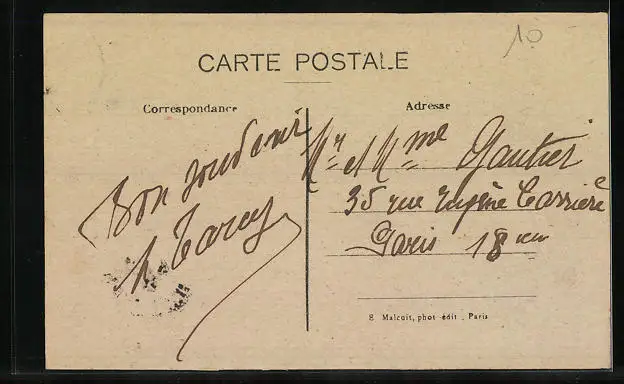 10
CARTE POSTALE
Correspondance
Adresse
Bon souvenir
Mr et Mme Gautier
35 rue Eugène Carrière
Paris 18em
E Malcuit, phot édit. Paris